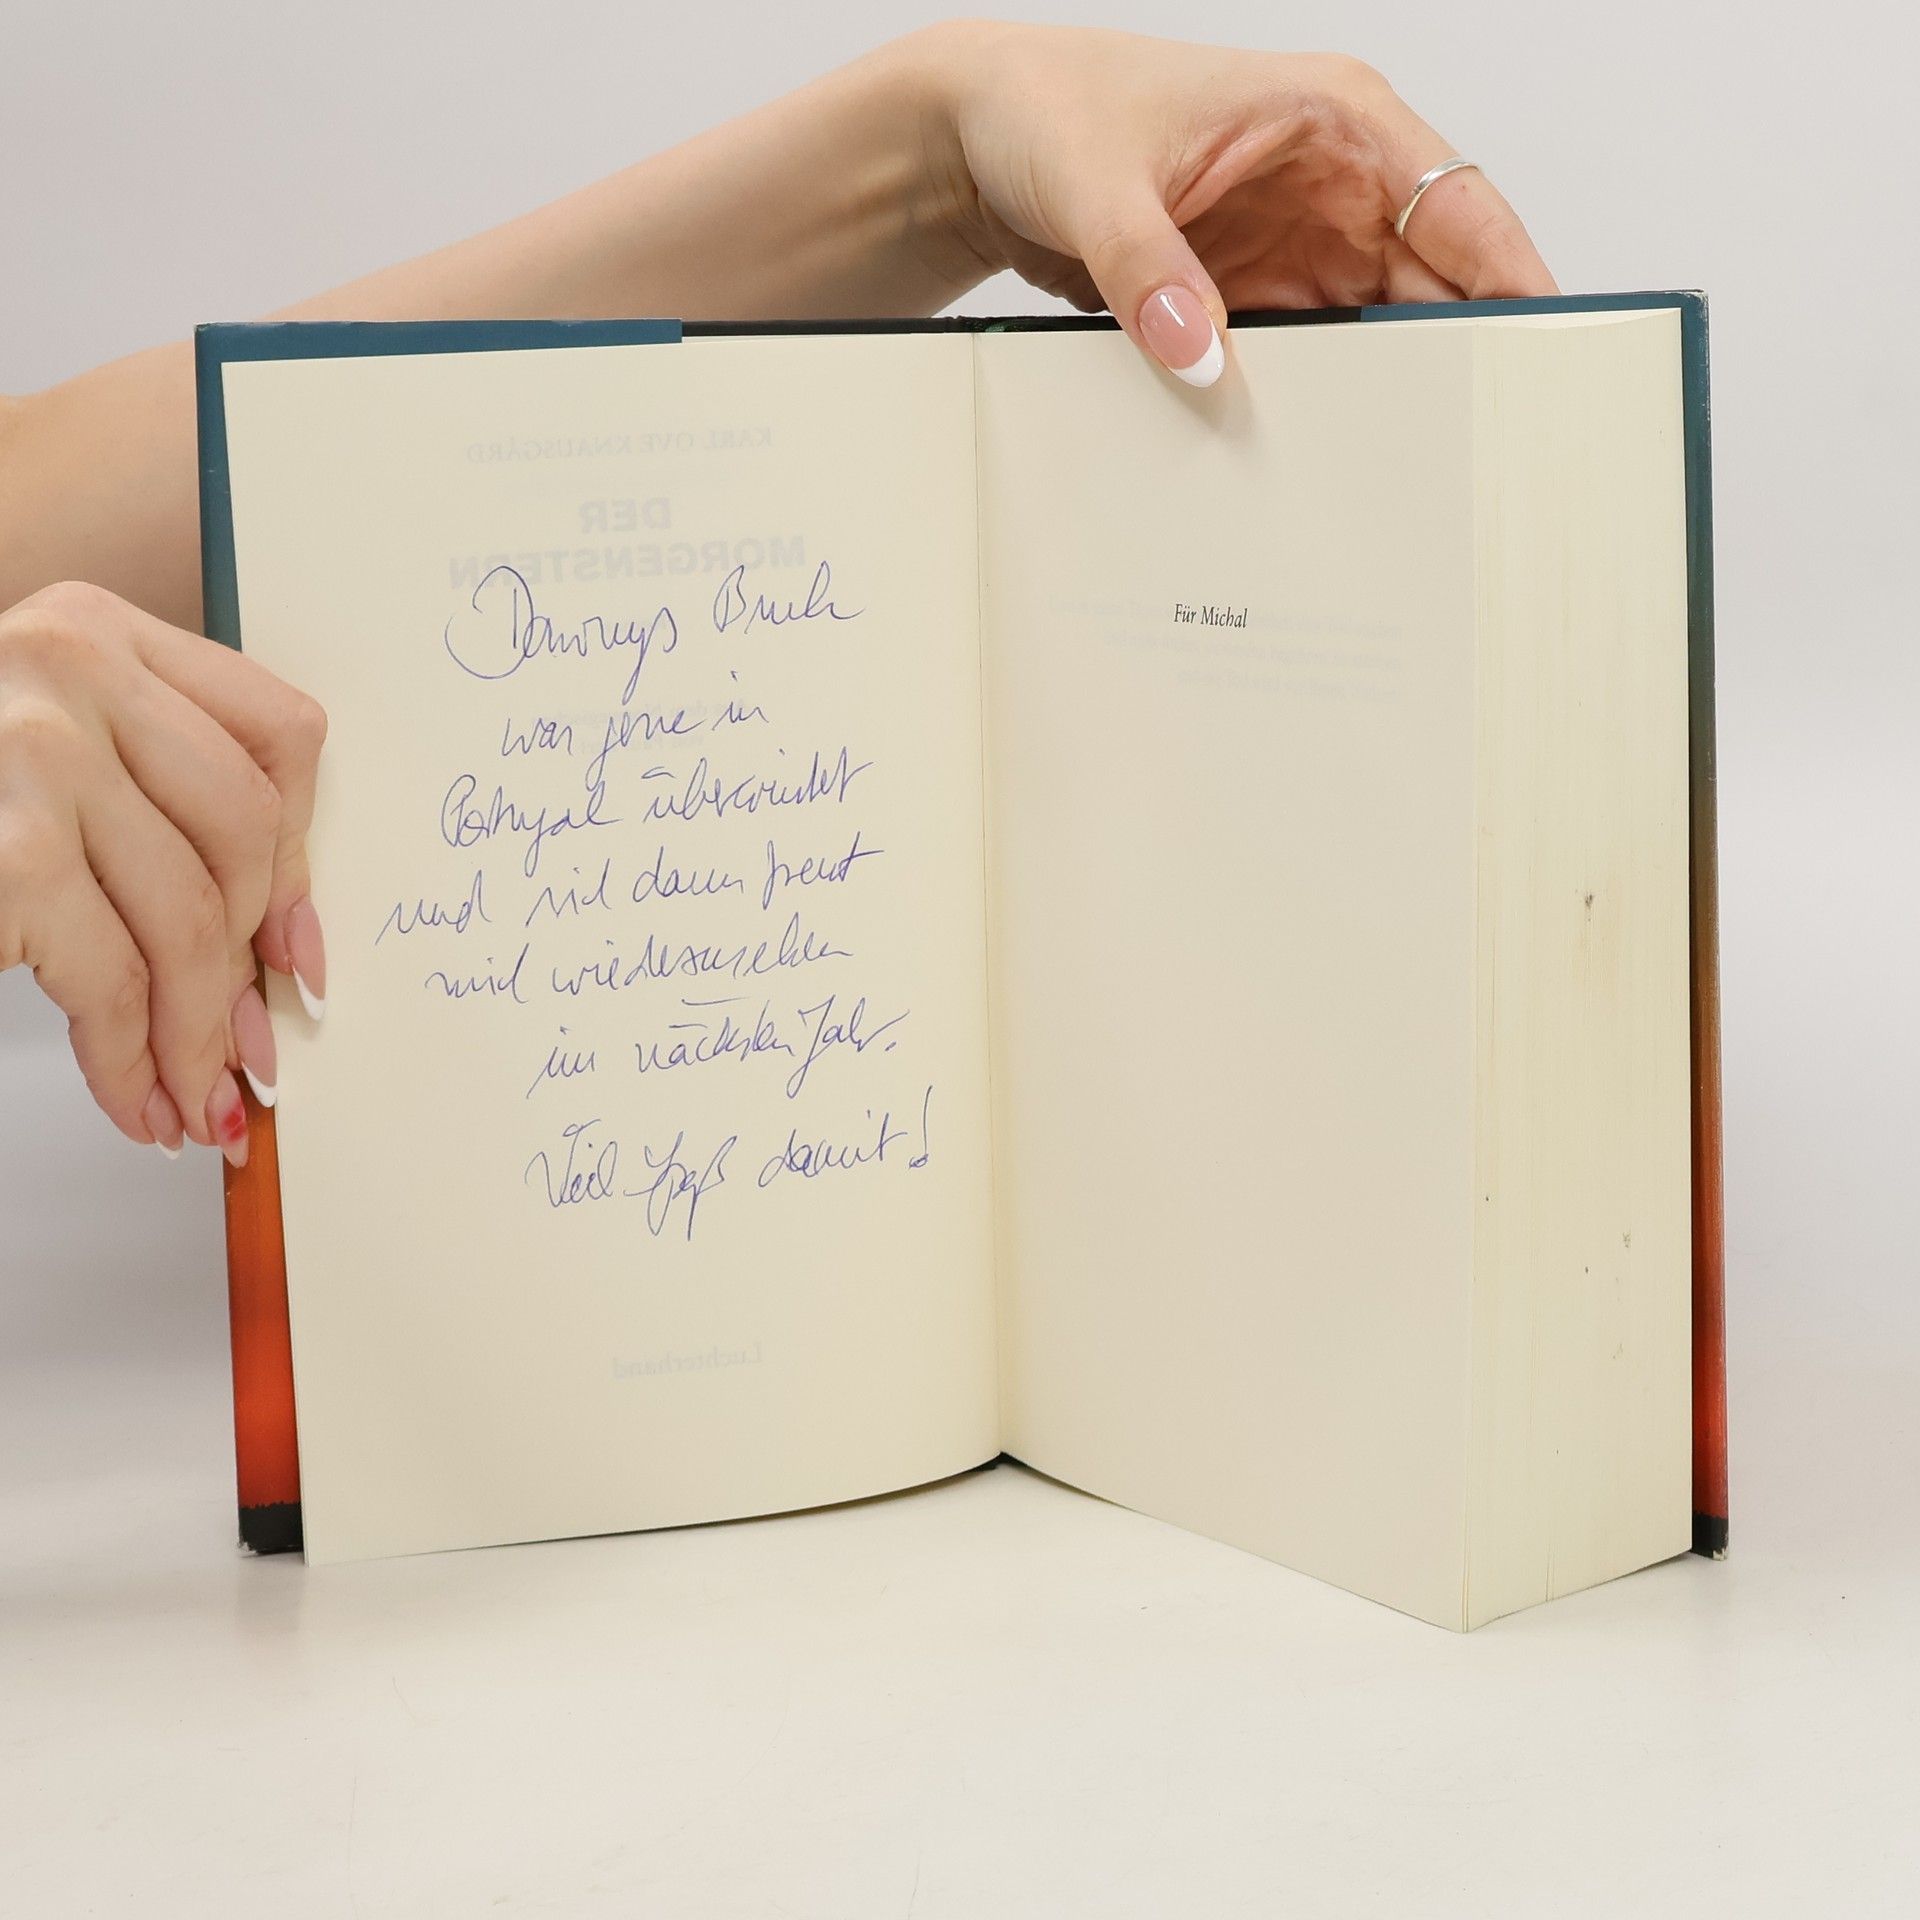 KARL OVE KNAUSGÅRD
DER
MORGENSTERN
Buch
in
Portugal überwintert
und sich dann freut
mich wiederzusehen
im nächsten Jahr.
Viel Spaß damit!
Luchterhand
Für Michal